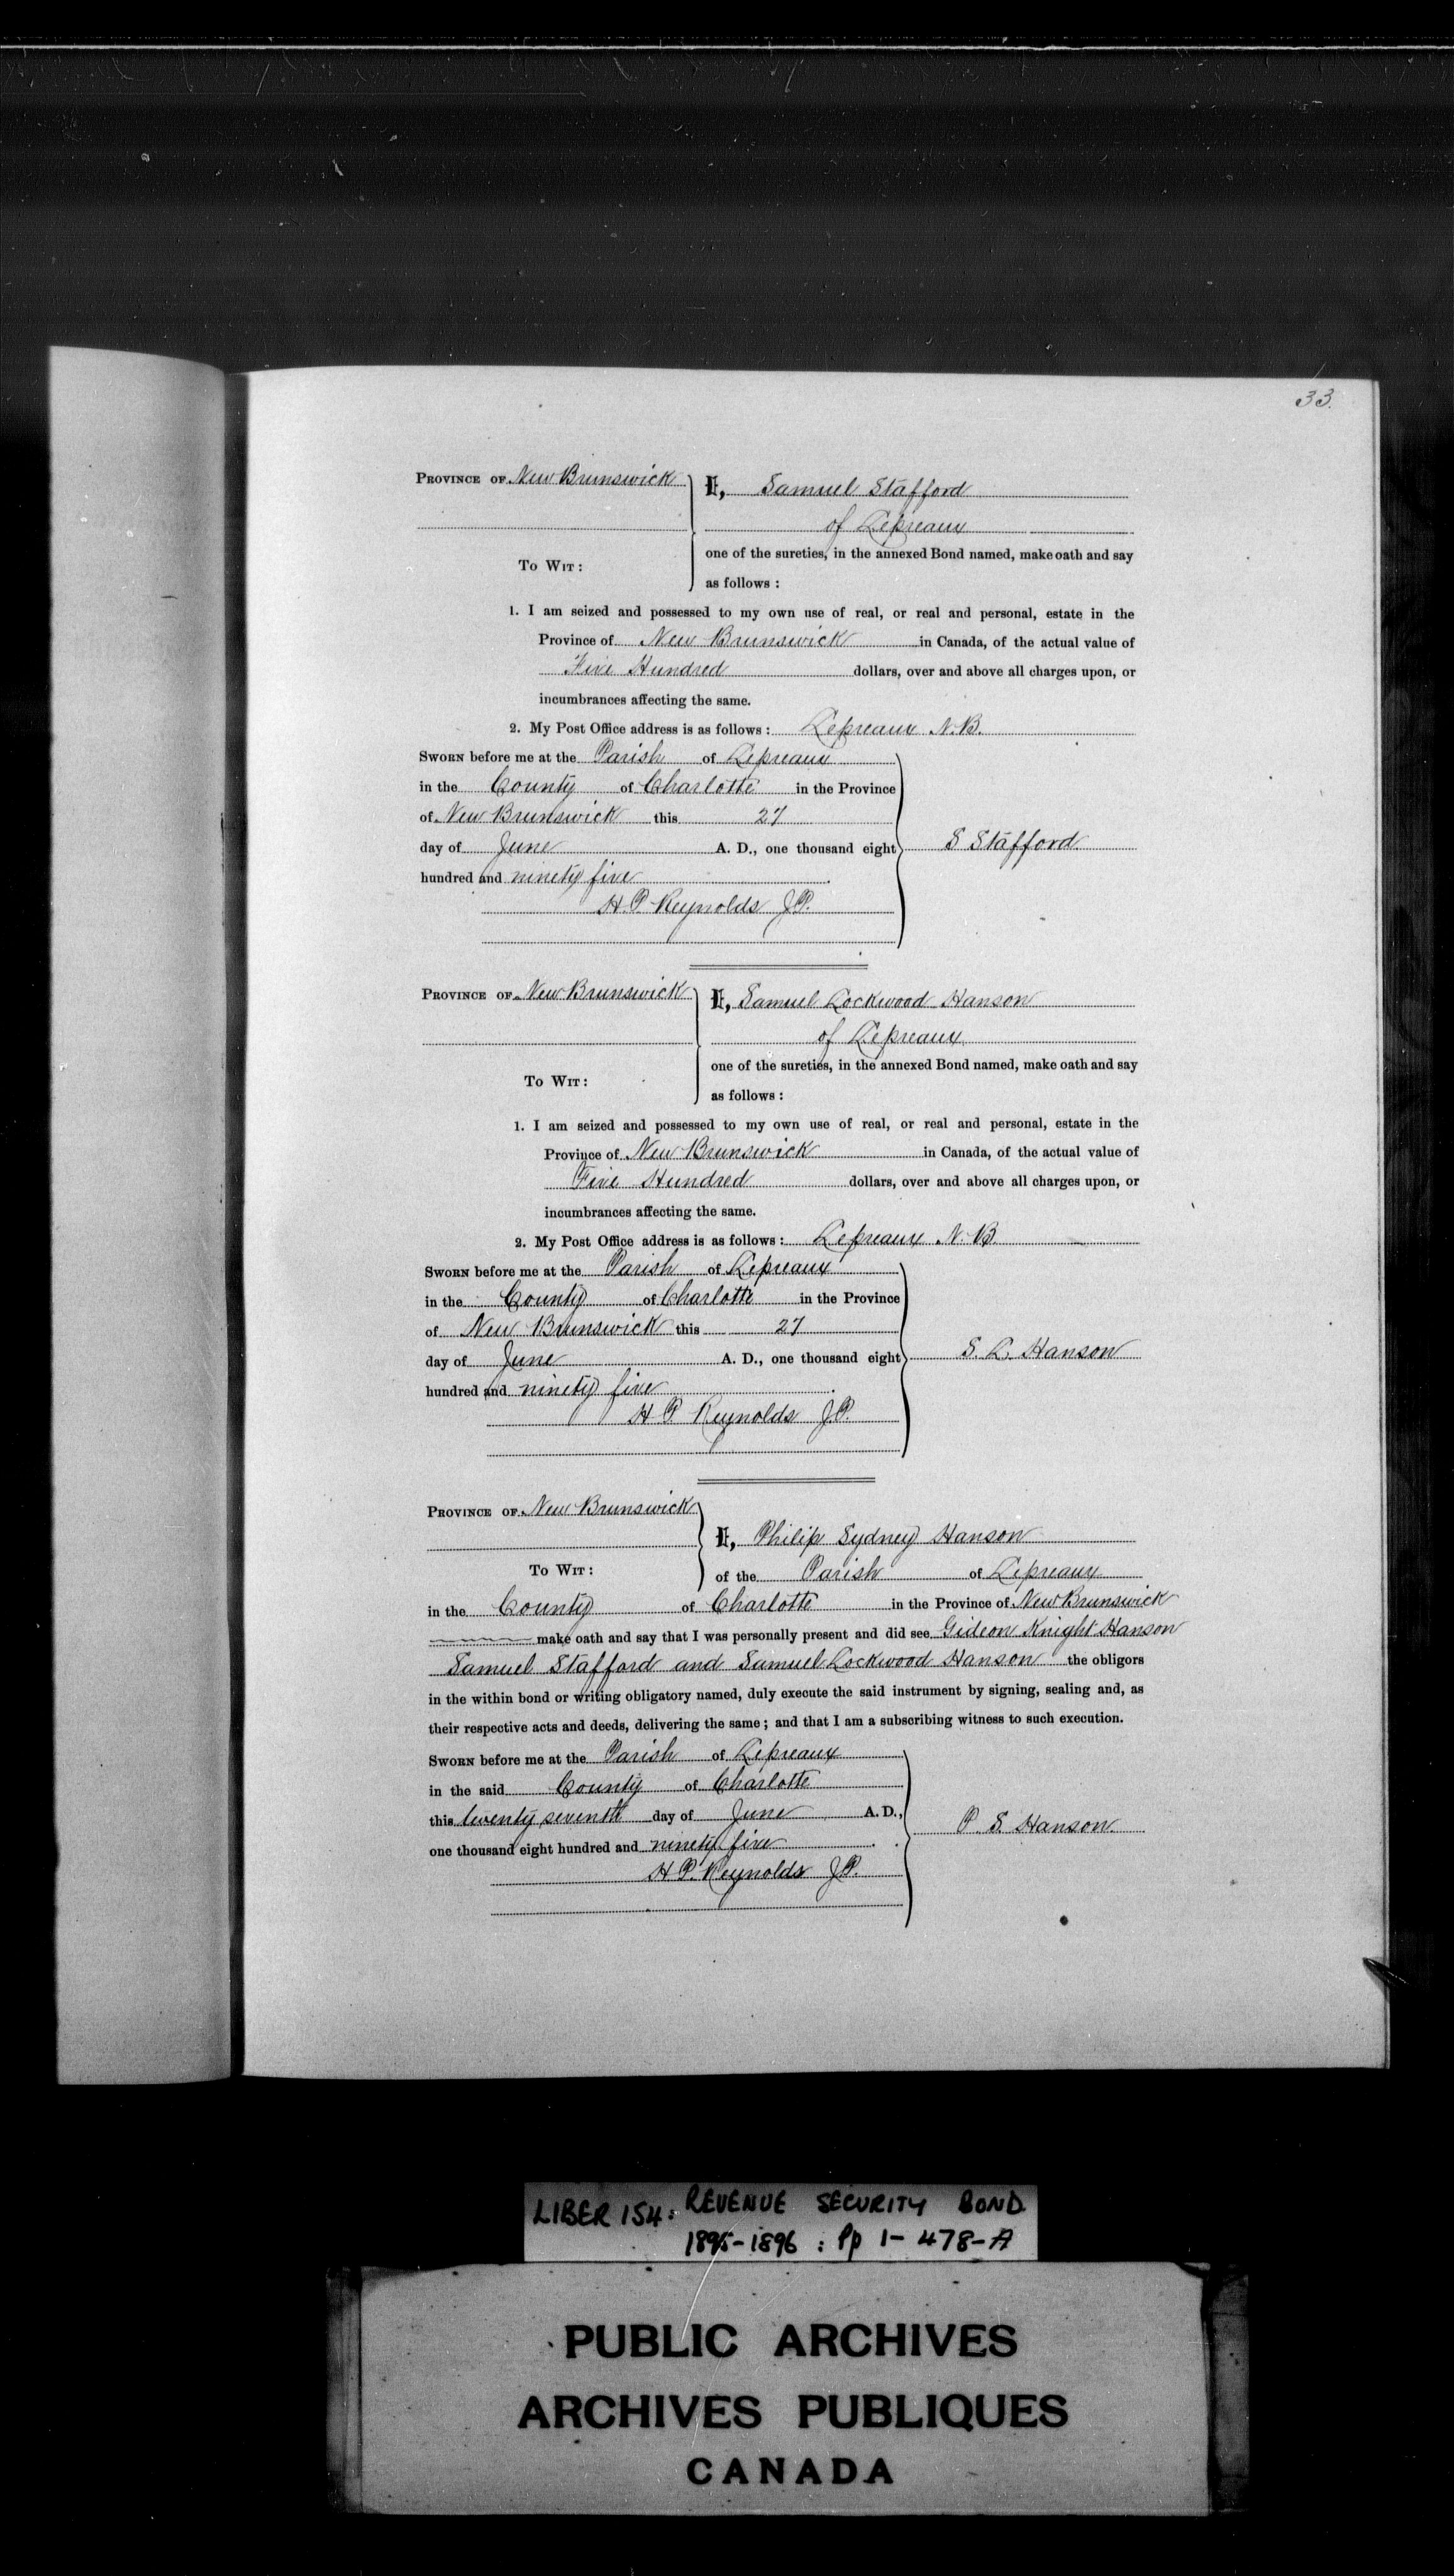 33.
PROVINCE OF New Brunswick
I, Samuel Stafford
of Lepreaux
one of the sureties, in the annexed Bond named, make oath and say
TO WIT:
as follows :
1. I am seized and possessed to my own use of real, or real and personal, estate in the
Province of New Brunswick in Canada, of the actual value of
Five Hundred dollars, over and above all charges upon, or
incumbrances affecting the same.
2. My Post Office address is as follows : Lepreaux N.B.
SWORN before me at the Parish of Lepreaux
in the County of Charlotte in the Province
of New Brunswick this 27
day of June A. D., one thousand eight
S Stafford
hundred and ninety five
H. P. Reynolds J.P.
PROVINCE OF New Brunswick
I, Samuel Lockwood Hanson
of Lepreaux
one of the sureties, in the annexed Bond named, make oath and say
TO WIT:
as follows :
1. I am seized and possessed to my own use of real, or real and personal, estate in the
Province of New Brunswick in Canada, of the actual value of
Five Hundred dollars, over and above all charges upon, or
incumbrances affecting the same.
2. My Post Office address is as follows : Lepreaux N. B.
SWORN before me at the Parish of Lepreaux
in the County of Charlotte in the Province
of New Brunswick this 27
day of June A. D., one thousand eight
S. L. Hanson
hundred and ninety five
H P. Reynolds J.P.
PROVINCE OF New Brunswick
I, Philip Sydney Hanson
TO WIT:
of the Parish of Lepreaux
in the County of Charlotte in the Province of New Brunswick
make oath and say that I was personally present and did see Gideon Knight Hanson
Samuel Stafford and Samuel Lockwood Hanson the obligors
in the within bond or writing obligatory named, duly execute the said instrument by signing, sealing and, as
their respective acts and deeds, delivering the same ; and that I am a subscribing witness to such execution.
SWORN before me at the Parish of Lepreaux
in the said County of Charlotte
this twenty seventh day of June A. D.,
P. S. Hanson
one thousand eight hundred and ninety five
H P. Reynolds J.P.
LIBER 154: REVENUE SECURITY BOND
1895-1896 : Pp 1- 478-A
PUBLIC ARCHIVES
ARCHIVES PUBLIQUES
CANADA